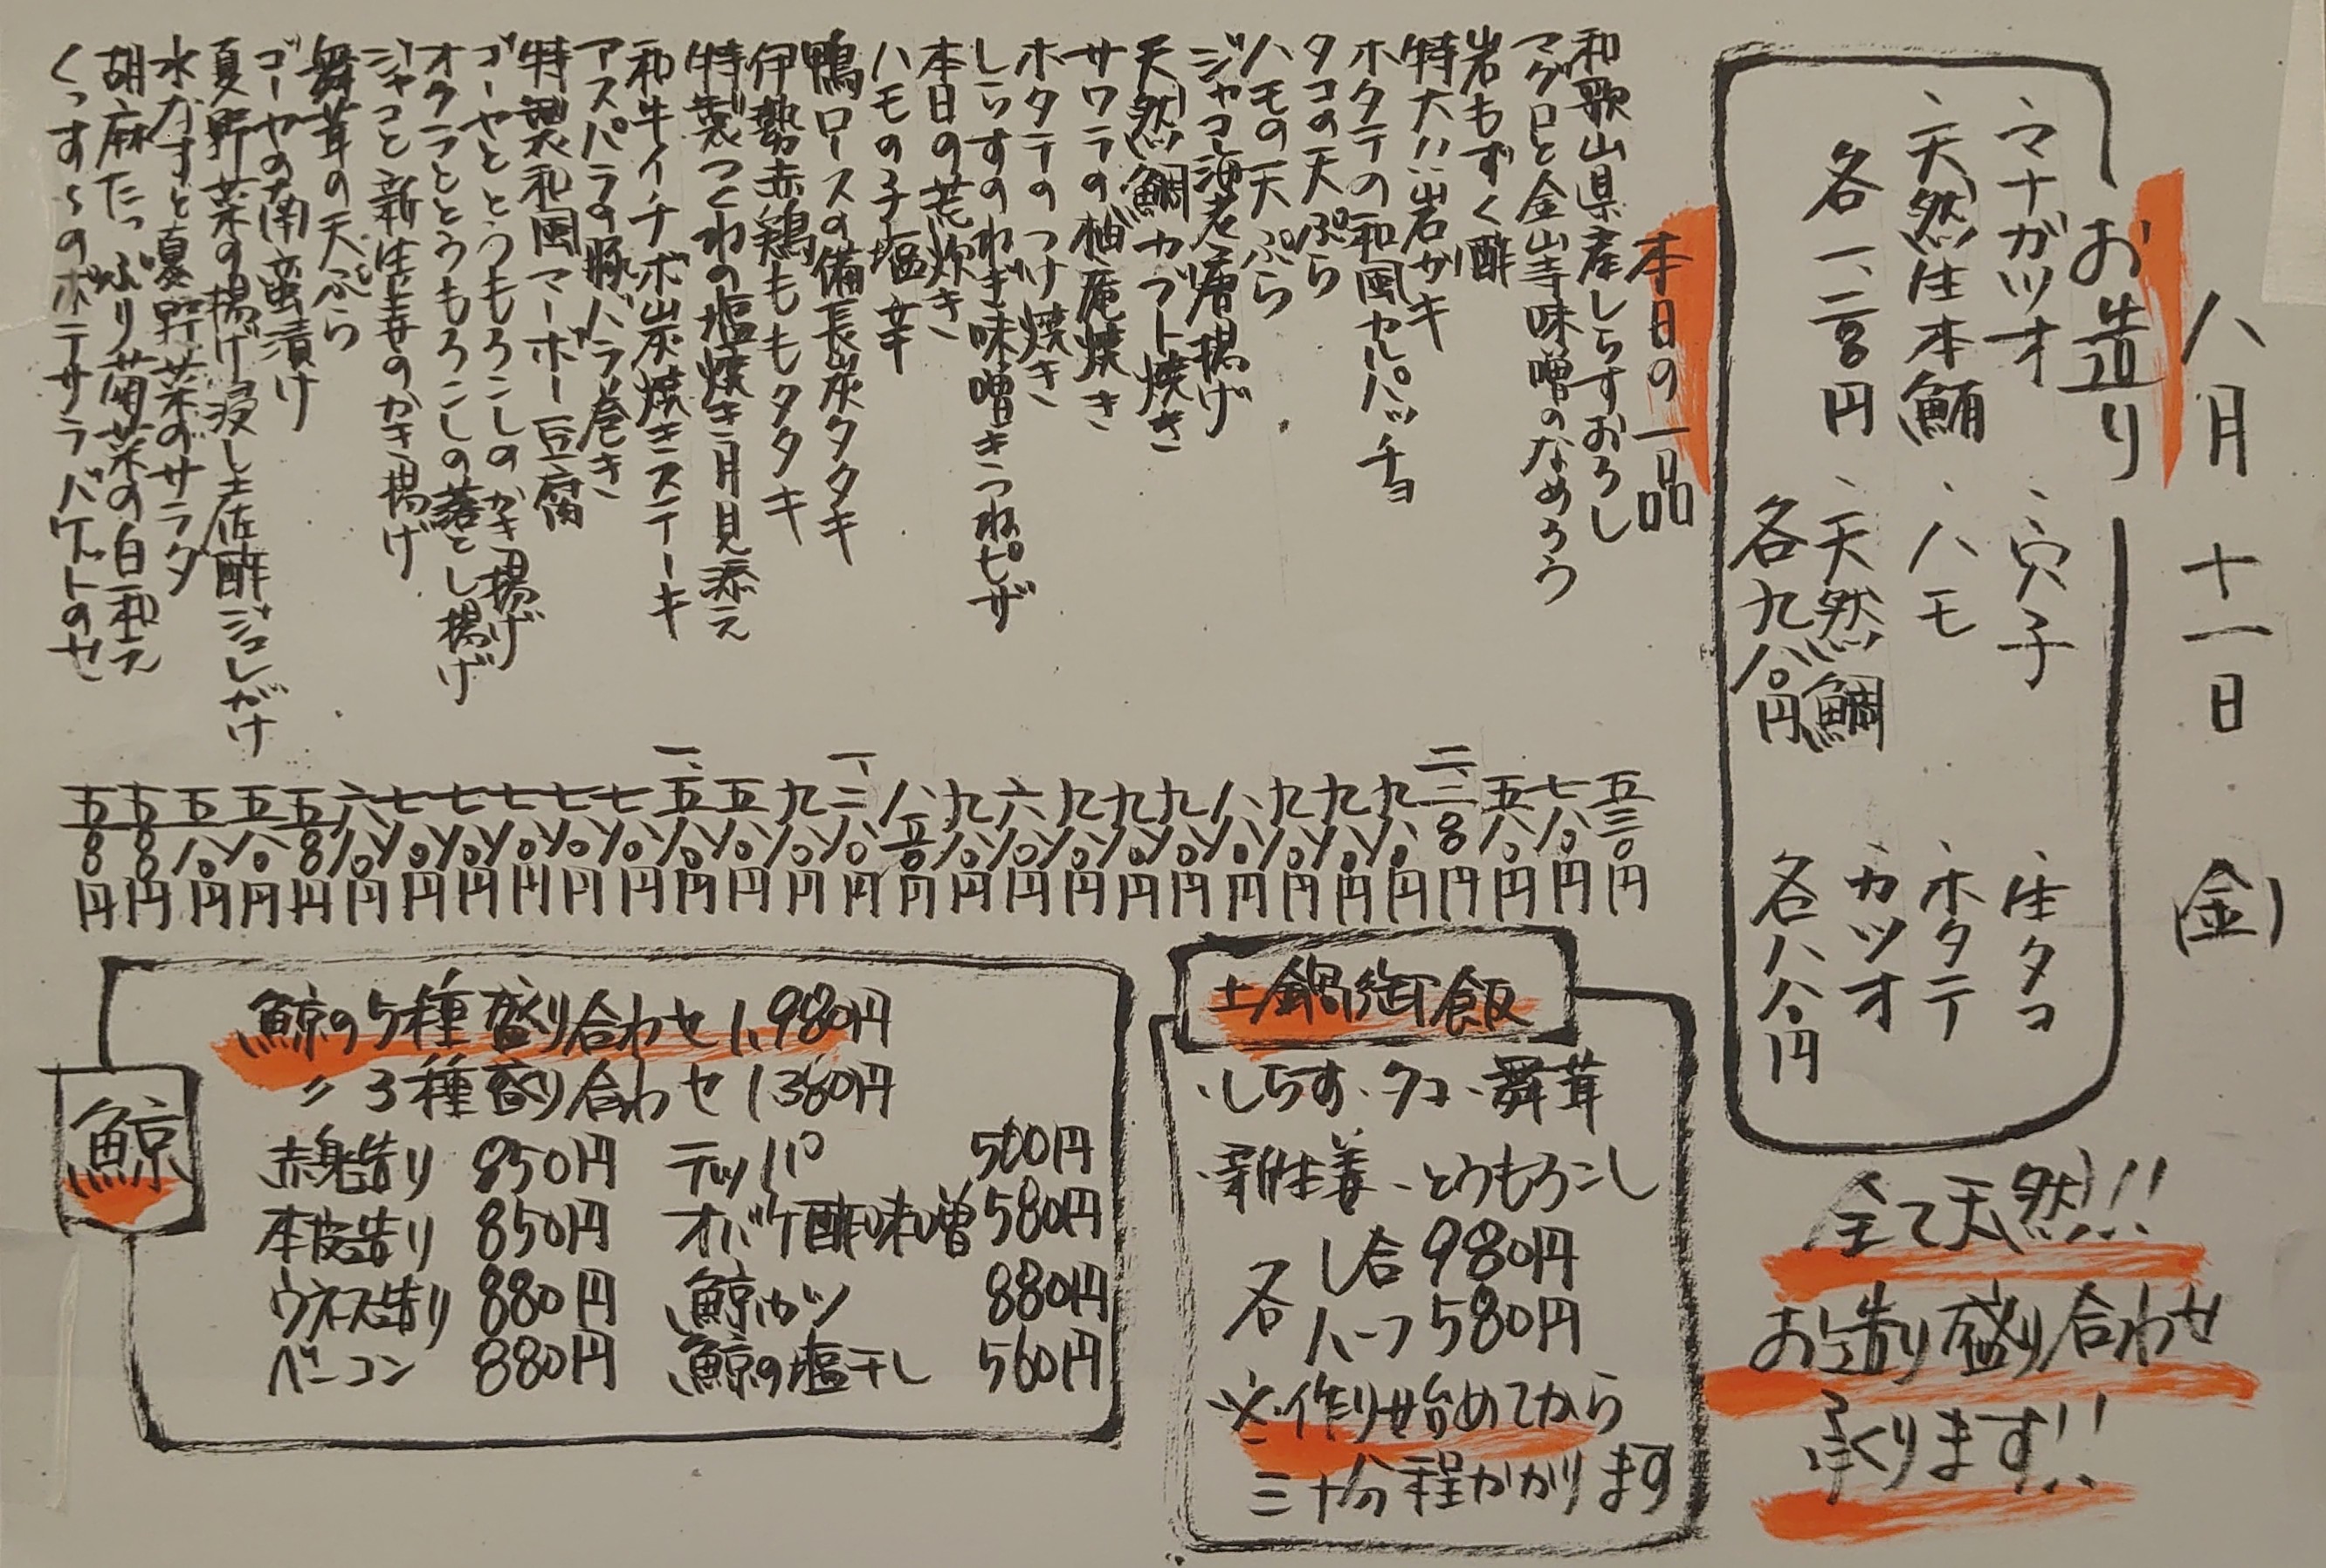 八月十一日(金)
お造り
、マナガツオ
、天然生本鮪
各一、二〇〇円
、穴子
、ハモ
、天然鯛
各九八〇円
、生タコ
、ホタテ
、カツオ
各八八〇円
全て天然!!
お造り盛り合わせ
承ります!!
本日の一品
和歌山県産しらすおろし 五三〇円
マグロと金山寺味噌のなめろう 七八〇円
岩もずく酢 五八〇円
特大!!岩ガキ
ホタテの和風カルパッチョ 九八〇円
タコの天ぷら 九八〇円
ハモの天ぷら 九八〇円
ジャコ海老唐揚げ 八八〇円
天然鯛カブト焼き 九八〇円
サワラの柚庵焼き 九八〇円
ホタテのつけ焼き 九八〇円
しらすのねぎ味噌きつねピザ 六八〇円
本日の荒炊き 九八〇円
ハモの子塩辛
鴨ロースの備長炭タタキ 一、二八〇円
伊勢赤鶏ももタタキ 九八〇円
特製つくねの塩焼き 月見添え 五八〇円
和牛イチボ炭焼きステーキ 一、五八〇円
アスパラの豚バラ巻き 七八〇円
特製和風マーボー豆腐 七八〇円
ゴーヤととうもろこしのかき揚げ 七八〇円
オクラととうもろこしの落とし揚げ 七八〇円
ジャコと新生姜のかき揚げ 七八〇円
舞茸の天ぷら 六八〇円
ゴーヤの南蛮漬け 五〇〇円
夏野菜の揚げ浸し土佐酢ジュレがけ 五八〇円
水なすと夏野菜のサラダ 五八〇円
胡麻たっぷり菊菜の白和え 五〇〇円
くっす〜のポテサラバゲットのせ 五〇〇円
土鍋御飯
、しらす、タコ、舞茸
、新生姜、とうもろこし
各 1合 980円
ハーフ 580円
※作り始めてから
三十分程かかります
鯨
鯨の5種盛り合わせ 1,980円
〃 3種盛り合わせ 1380円
赤身造り 850円 テッパ 500円
本皮造り 850円 オバケ酢味噌 580円
ウネス造り 880円 鯨カツ 880円
ベーコン 880円 鯨の塩干し 560円